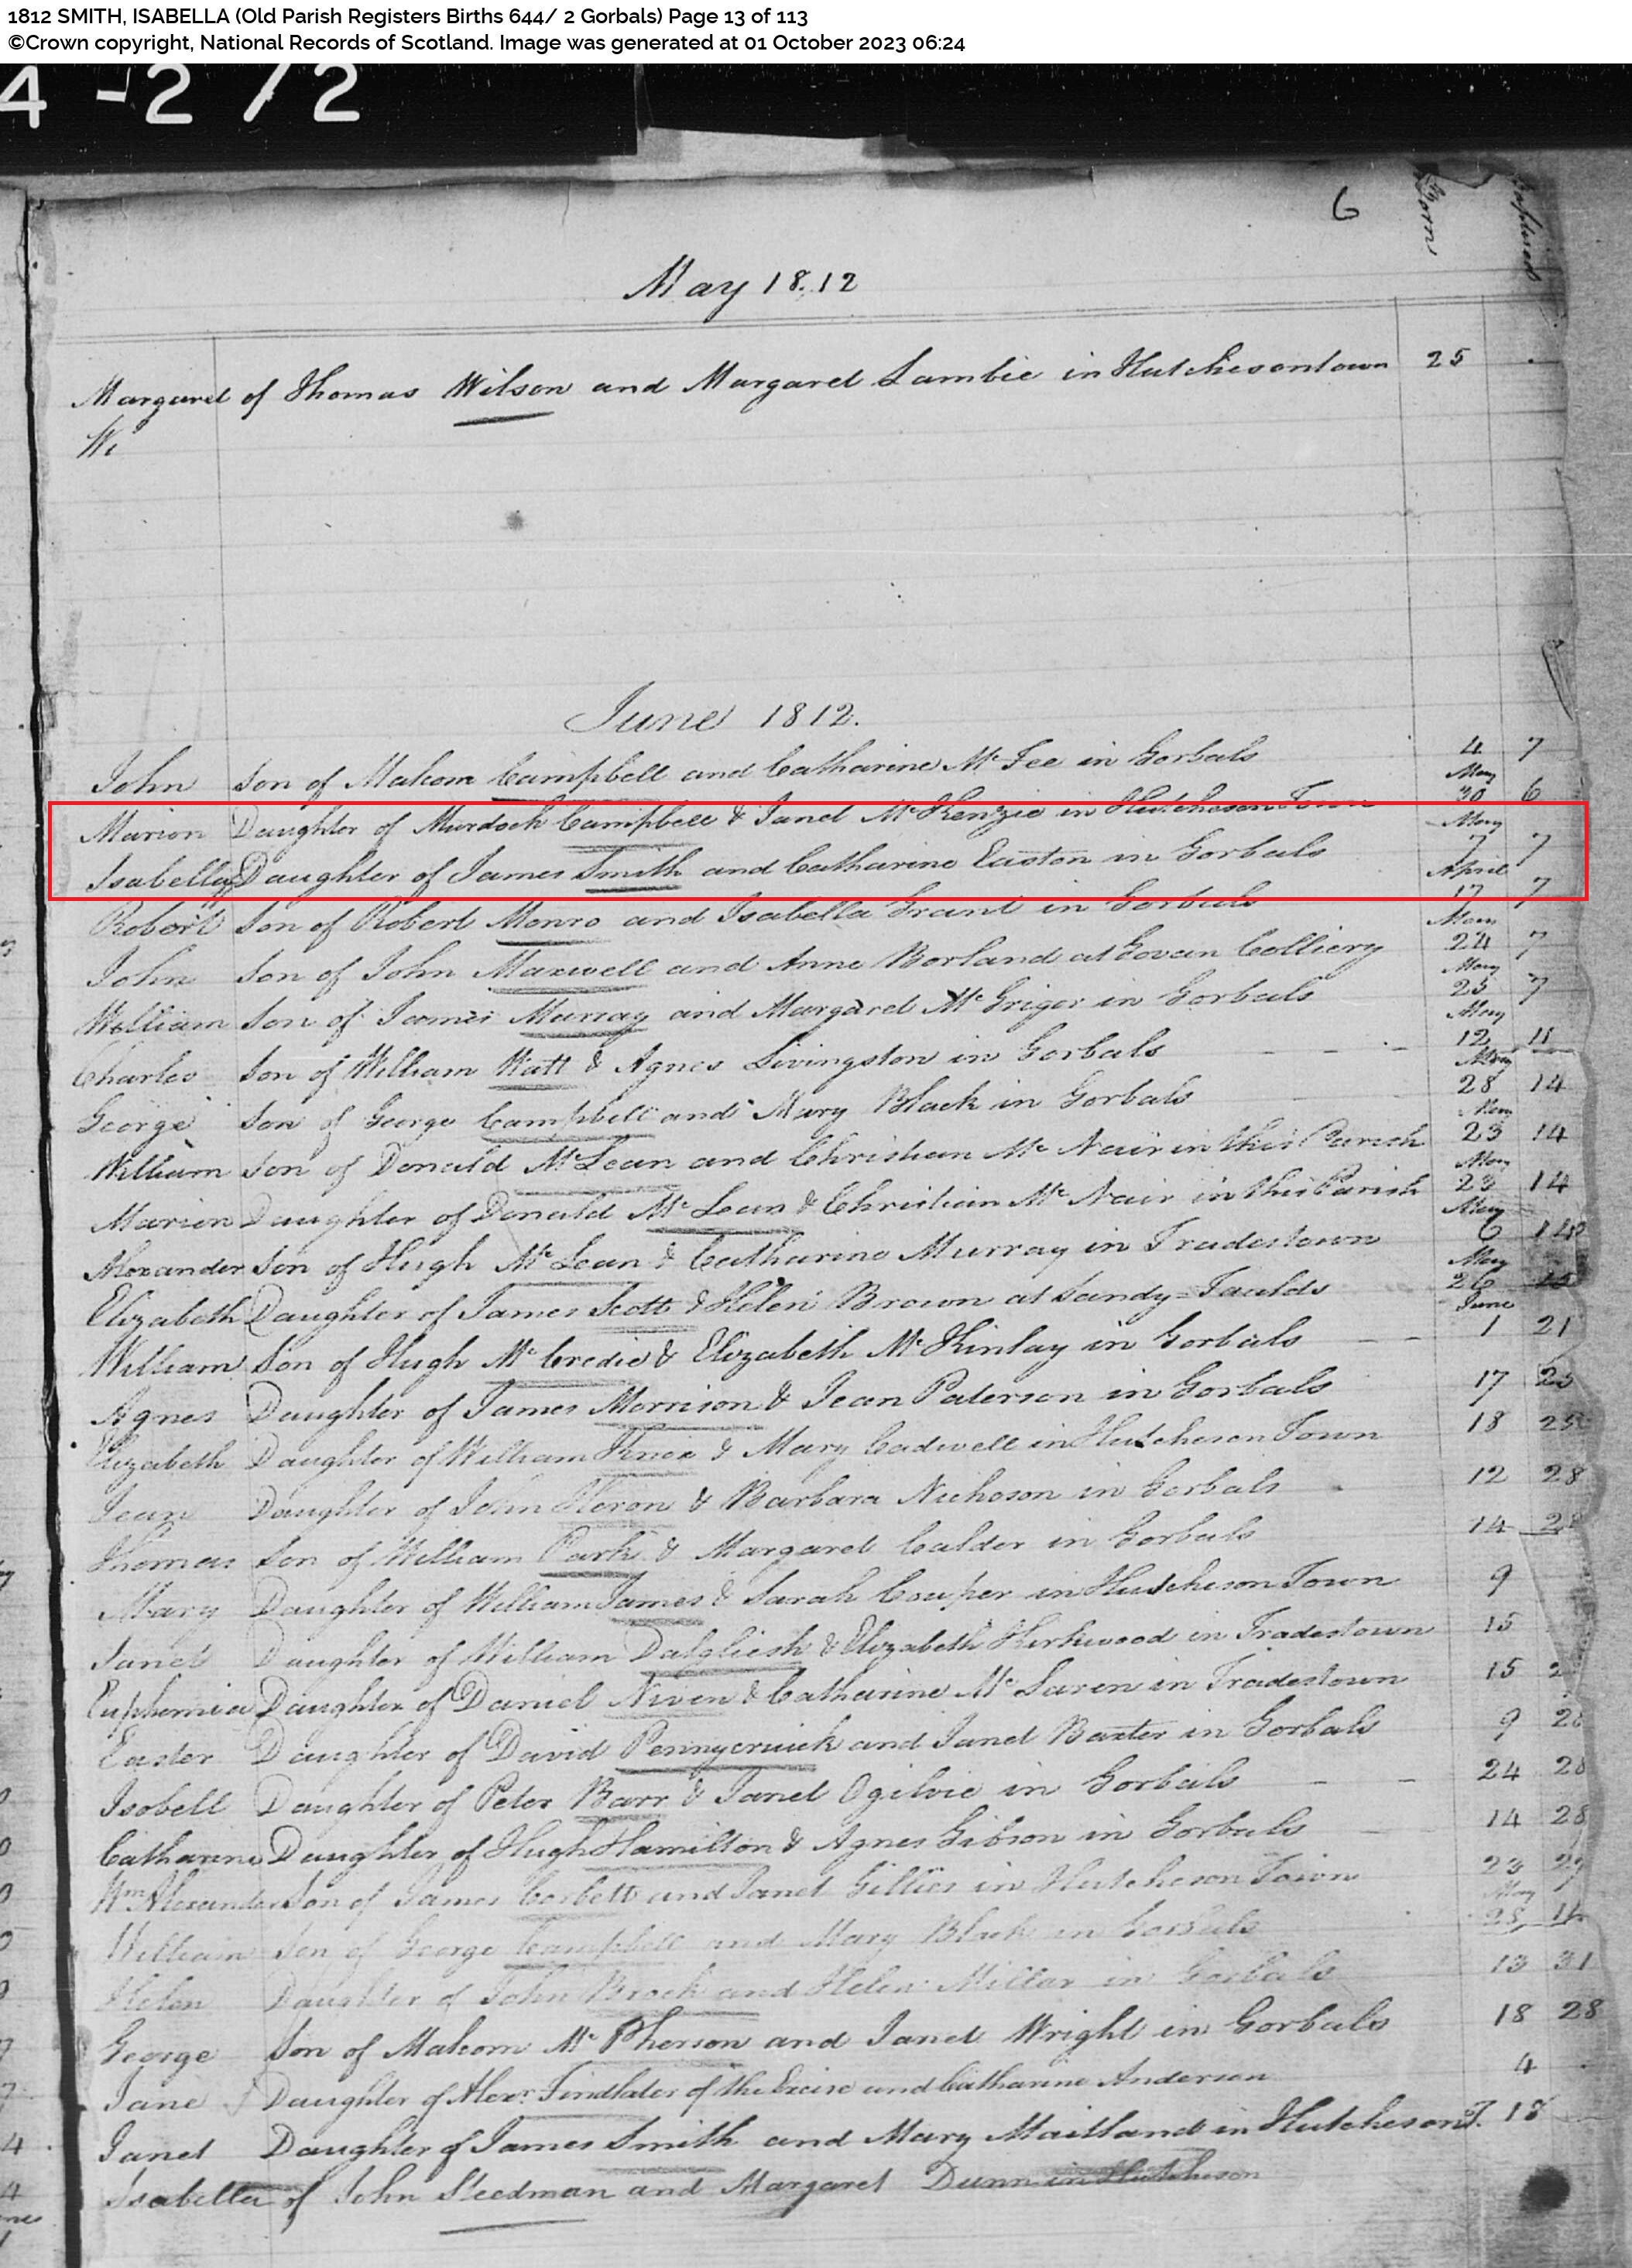 1812 SMITH, ISABELLA (Old Parish Registers Births 644/ 2 Gorbals) Page 13 of 113
©Crown copyright, National Records of Scotland. Image was generated at 01 October 2023 06:24
4 -2 /2
6 Born Baptised
May 18.12
Margaret of Thomas Wilson and Margaret Lambie in Hutchesontown 25
Wi
June 1812.
John Son of Malcom Campbell and Catharine Mc Fee in Gorbals 4 7
Marion Daughter of Murdoch Campbell & Janet McKenzie in Hutcheson Town May 30 6
Isabella Daughter of James Smith and Catharine Easton in Gorbals May 7 7
Robert Son of Robert Monro and Isabella Grant in Gorbals April 17 7
John Son of John Maxwell and Anne Borland at Govan Colliery May 24 7
William Son of James Murray and Margaret McGrigor in Gorbals May 25 7
Charles Son of William Watt & Agnes Livingston in Gorbals May 12 11
George Son of George Campbell and Mary Black in Gorbals May 28 14
William Son of Donald McLean and Christian Mc Nair in this Parish May 23 14
Marion Daughter of Donald McLean & Christian Mc Nair in this Parish May 23 14
Alexander Son of Hugh McLean & Catharine Murray in Tradestown May 6 14
Elizabeth Daughter of James Scott & Helen Brown at Sandy=Faulds May 26
William Son of Hugh McCredie & Elizabeth McKinlay in Gorbals June 1 21
Agnes Daughter of James Morrison & Jean Paterson in Gorbals 17 25
Elizabeth Daughter of William Knox & Mary Cadwell in Hutcheson Town 18 25
Jean Daughter of John Heron & Barbara Nicholson in Gorbals 12 28
Thomas Son of William Park & Margaret Calder in Gorbals 14
Mary Daughter of William James & Sarah Couper in Hutcheson Town 9
Janet Daughter of William Dalgliesh & Elizabeth Kirkwood in Tradestown 15
Euphemia Daughter of Daniel Niven & Catharine McLaren in Tradestown 15
Easter Daughter of David Pennycruick and Janet Baxter in Gorbals 9 28
Isobell Daughter of Peter Barr & Janet Ogilvie in Gorbals 24 28
Catharine Daughter of Hugh Hamilton & Agnes Gibson in Gorbals 14 28
Wm Alexander Son of James Corbett and Janet Gillies in Hutcheson Town 23 29
William Son of George Campbell and Mary Black in Gorbals May 28 14
Helen Daughter of John Brock and Helen Millar in Gorbals 13 31
George Son of Malcom McPherson and Janet Wright in Gorbals 18 28
Jane Daughter of Alexr. Findlater of the Excise and Catharine Anderson 4
Janet Daughter of James Smith and Mary Maitland in Hutcheson T. 18
Isabella of John Steedman and Margaret Dunn in Hutcheson